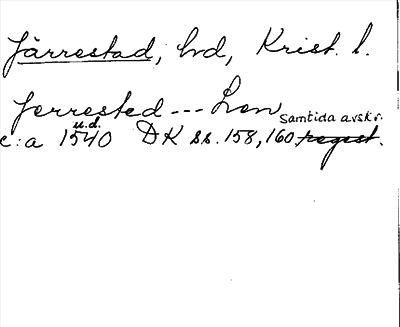 Järrestad, hd, Krist. l.
Jerrested --- Len samtida avskr.
c:a u.d. 1540 DK ss. 158, 160 regest.